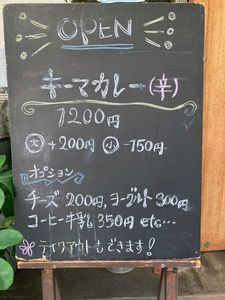 OPEN
キーマカレー(辛)
1200円
大 +200円 小 -150円
オプション
チーズ 200円, ヨーグルト 300円
コーヒー牛乳 350円 etc…
テイクアウトもできます!